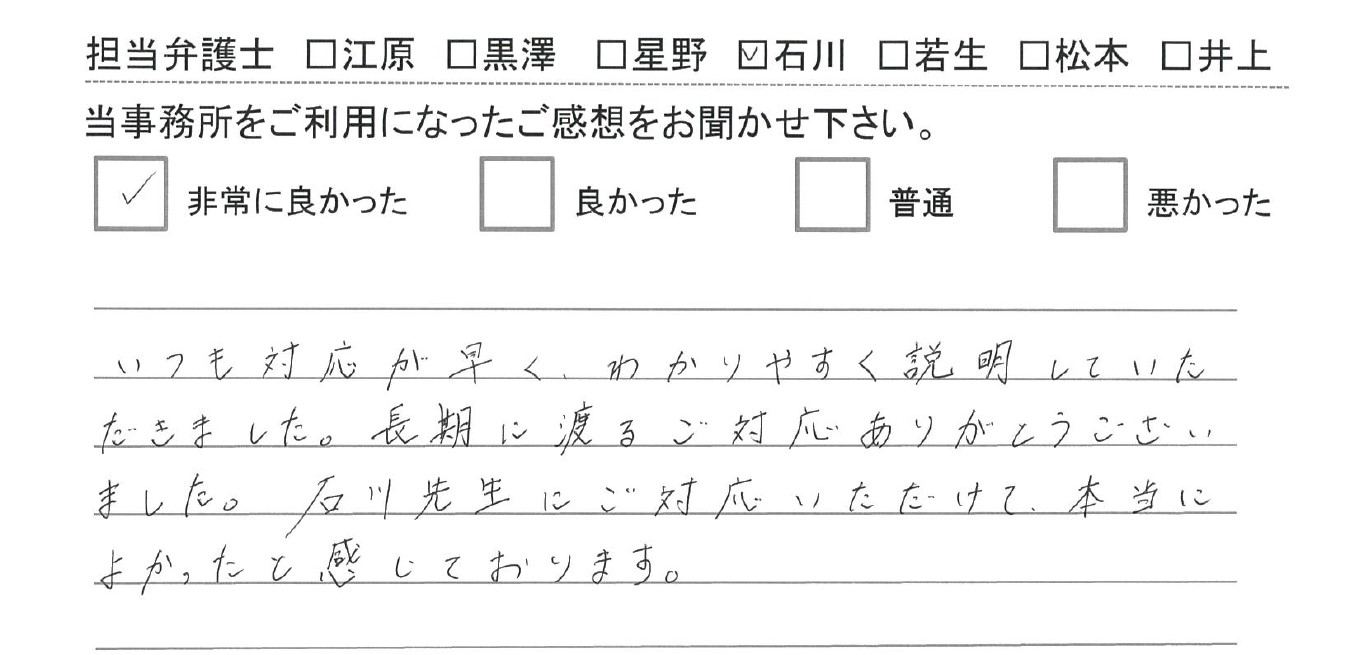 担当弁護士 □江原 □黒澤 □星野 ☑石川 □若生 □松本 □井上
当事務所をご利用になったご感想をお聞かせ下さい。
☑ 非常に良かった □ 良かった □ 普通 □ 悪かった
いつも対応が早く、わかりやすく説明していた
だきました。長期に渡るご対応ありがとうござい
ました。石川先生にご対応いただけて、本当に
よかったと感じております。